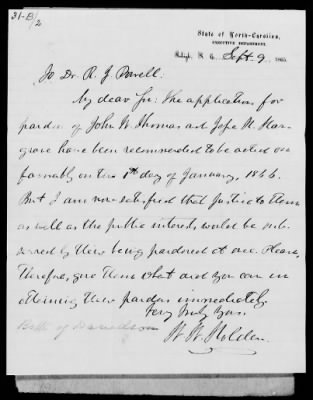 31-B/2
State of North-Carolina,
EXECUTIVE DEPARTMENT,
Raleigh, N. C. Sept. 9, 1865.
To Dr. R. J. Powell:
My dear Sir: The applications for
pardon of John W. Thomas and Jesse H. Har-
grove have been recommended to be acted on
favorably on the 1st day of January, 1866.
But I am now satisfied that justice to them
as well as the public interest, would be sub-
served by their being pardoned at once. Please,
therefore, give them what aid you can in
obtaining their pardons immediately.
Very truly yours,
Both of Davidson
W. W. Holden.